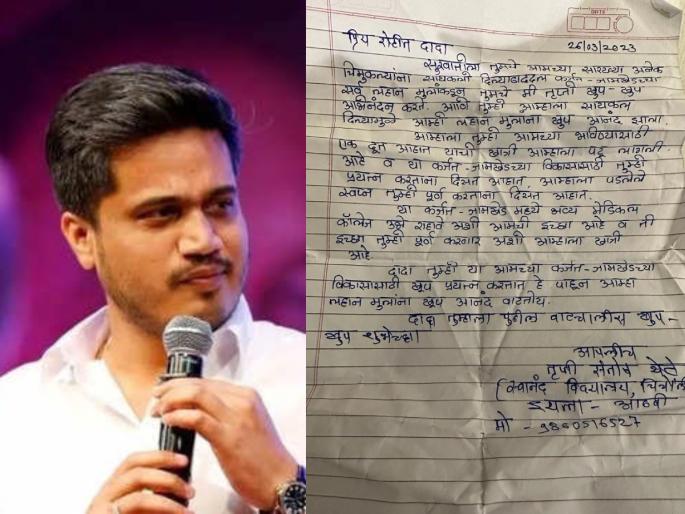 DATE
प्रिय रोहीत दादा 26/03/2023
सुरवातीला तुमचे आमच्या सारख्या अनेक
चिमुकल्यांना सायकली दिल्याबाद्दल कर्जत-जामखेडच्या
सर्व लहान मुलांकडून तुमचे मी तृप्ती खुप-खुप
अभिनंदन करते. आणि तुम्ही आम्हाला सायकल
दिल्यामुळे आम्ही लहान मुलांना खुप आनंद झाला.
आम्हाला तुम्ही आमच्या भविष्यासाठी
एक दूत आहात याची खात्री आम्हाला पटू लागली
आहे व या कर्जत-जामखेडच्या विकासासाठी तुम्ही
प्रयत्न करताना दिसत आहात. आम्हाला पडलेले
स्वप्न तुम्ही पूर्ण करताना दिसत आहात.
या कर्जत-जामखेड मध्ये भव्य मेडिकल
कॉलेज उभे राहावे अशी आमची इच्छा आहे व ती
इच्छा तुम्ही पूर्ण करणार अशी आम्हाला खात्री
आहे.
दादा तुम्ही या आमच्या कर्जत-जामखेडच्या
विकासासाठी खुप प्रयत्न करतात हे पाहून आम्हा
लहान मुलांना खुप आनंद वाटतोय.
दादा तुम्हाला पुढील वाटचालीस खुप-
खुप शुभेच्छा।
आपलीच
तृप्ती संतोष
(स्वानंद विद्यालय,
इयत्ता - आठवी
मो - 9860516527